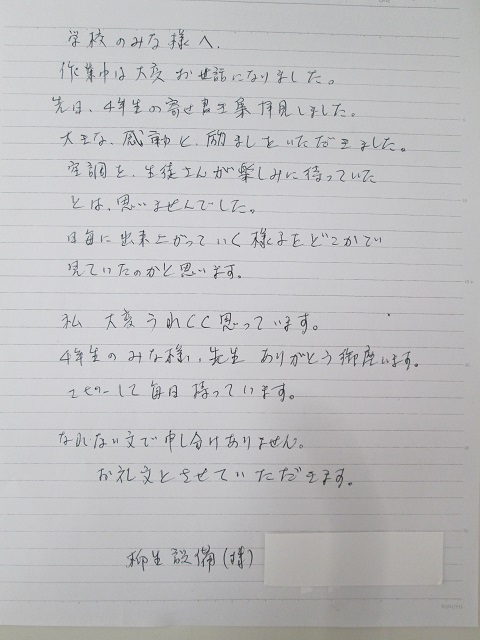 学校のみな様へ.
作業中は大変お世話になりました。
先日、4年生の寄せ書き集拝見しました。
大きな、感動と、励ましをいただきました。
空調を、生徒さんが楽しみに待っていた
とは、思いませんでした。
日毎に出来上がっていく様子をどこかで
見ていたのかと思います。
私 大変うれしく思っています。
4年生のみな様、先生 ありがとう御座います。
コピーして毎日持っています。
なれない文で申し分けありません。
お礼文とさせていただきます。
柳生設備(様)